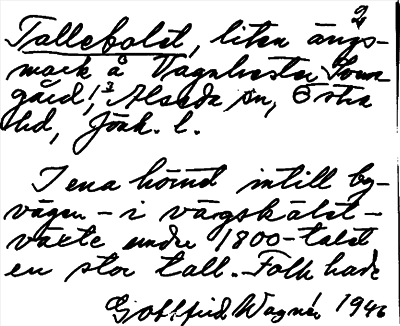 2
Tallebolet, liten ängs-
mark å Vagnhester
gård, Alseda sn, Östra
hd, Jönk. l.
I ena hörnet intill by-
vägen - i vägskälet -
växte under 1800-talet
en stor tall. Folk hade
Gottfrid Wagnér 1946